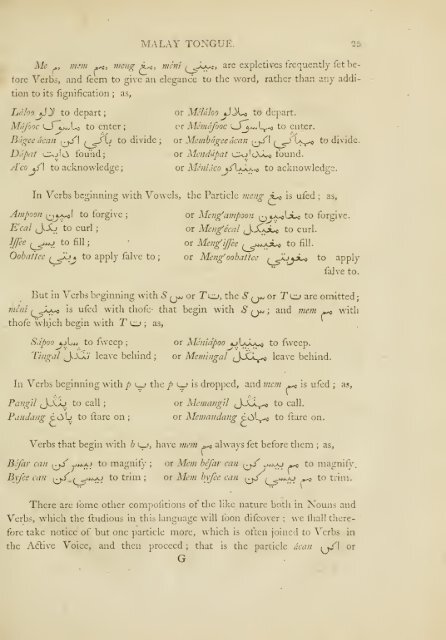 MALAY TONGUE. 25
Me م, mem مم, meng مڠ, méni ميني, are expletives frequently set be-
fore Verbs, and seem to give an elegance to the word, rather than any addi-
tion to its signification ; as,
Láloo لالو to depart ; or Méláloo ملالو to depart.
Másooc ماسوك to enter ; or Mémásooc مماسوك to enter.
Bágee ácan to divide ; or Membágee ácan to divide.
Dápat داپت found ; or Mendápat found.
A'co اكو to acknowledge ; or to acknowledge.
In Verbs beginning with Vowels, the Particle meng مڠ is used ; as,
Ampoon امپون to forgive ; or Meng'ampoon مڠامپون to forgive.
E'cal to curl ; or Meng'écal to curl.
Iſſee to fill ; or Meng'iſſee to fill.
Oobattee to apply salve to ; or Meng'oobattee to apply
salve to.
But in Verbs beginning with S س or T ت, the S س or T ت are omitted ;
méni ميني is used with those that begin with S س ; and mem مم with
those which begin with T ت ; as,
Sápoo ساپو to sweep ; or Méniápoo to sweep.
Tingal تڠكل leave behind ; or Memingal leave behind.
In Verbs beginning with p ڤ the p ڤ is dropped, and mem مم is used ; as,
Pangil to call ; or Memangil to call.
Pandang to stare on ; or Memandang to stare on.
Verbs that begin with b ب, have mem مم always set before them ; as,
Bésar can to magnify ; or Mem bésar can to magnify.
Bysee can to trim ; or Mem bysee can to trim.
There are some other compositions of the like nature both in Nouns and
Verbs, which the studious in this language will soon discover ; we shall there-
fore take notice of but one particle more, which is often joined to Verbs in
the Active Voice, and then proceed ; that is the particle ácan اكن or
G